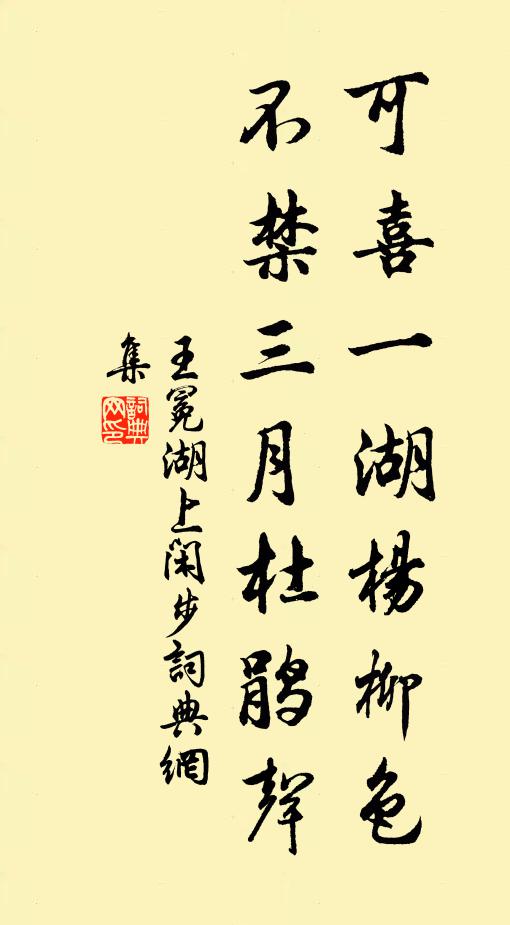 可喜一湖楊柳色
不禁三月杜鵑聲
王冕湖上閑步詞典網
集
詞典網印